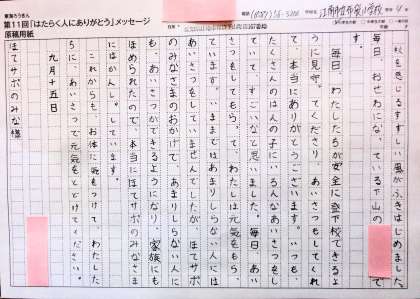 東海ろうきん
第11回「はたらく人にありがとう」メッセージ
原稿用紙
電話
学校
年 4
秋を感じるすずしい風がふきはじめました。
毎日、おせわになっている下山の
です。
毎日、わたしたちが安全に登下校できるよ
うに見守ってくださり、あいさつもしてくれ
て、本当にありがとうございます。いつも、
たくさんのはんの子にいろんなあいさつをし
ていて、すごいなと思いました。毎日、あい
さつをしてもらって、わたしは元気をもらっ
ています。いままではあまりしらない人には
あいさつをしていませんでしたが、ほてサポ
のみなさまのおかげで、あまりしらない人に
も、あいさつができるようになり、家族にも
ほめられたので、本当にほてサポのみなさま
にはかんしゃしています。
これからも、お体に気をつけて、わたした
ちに、あいさつで元気をとどけてください。
九月十五日
ほてサポのみな様